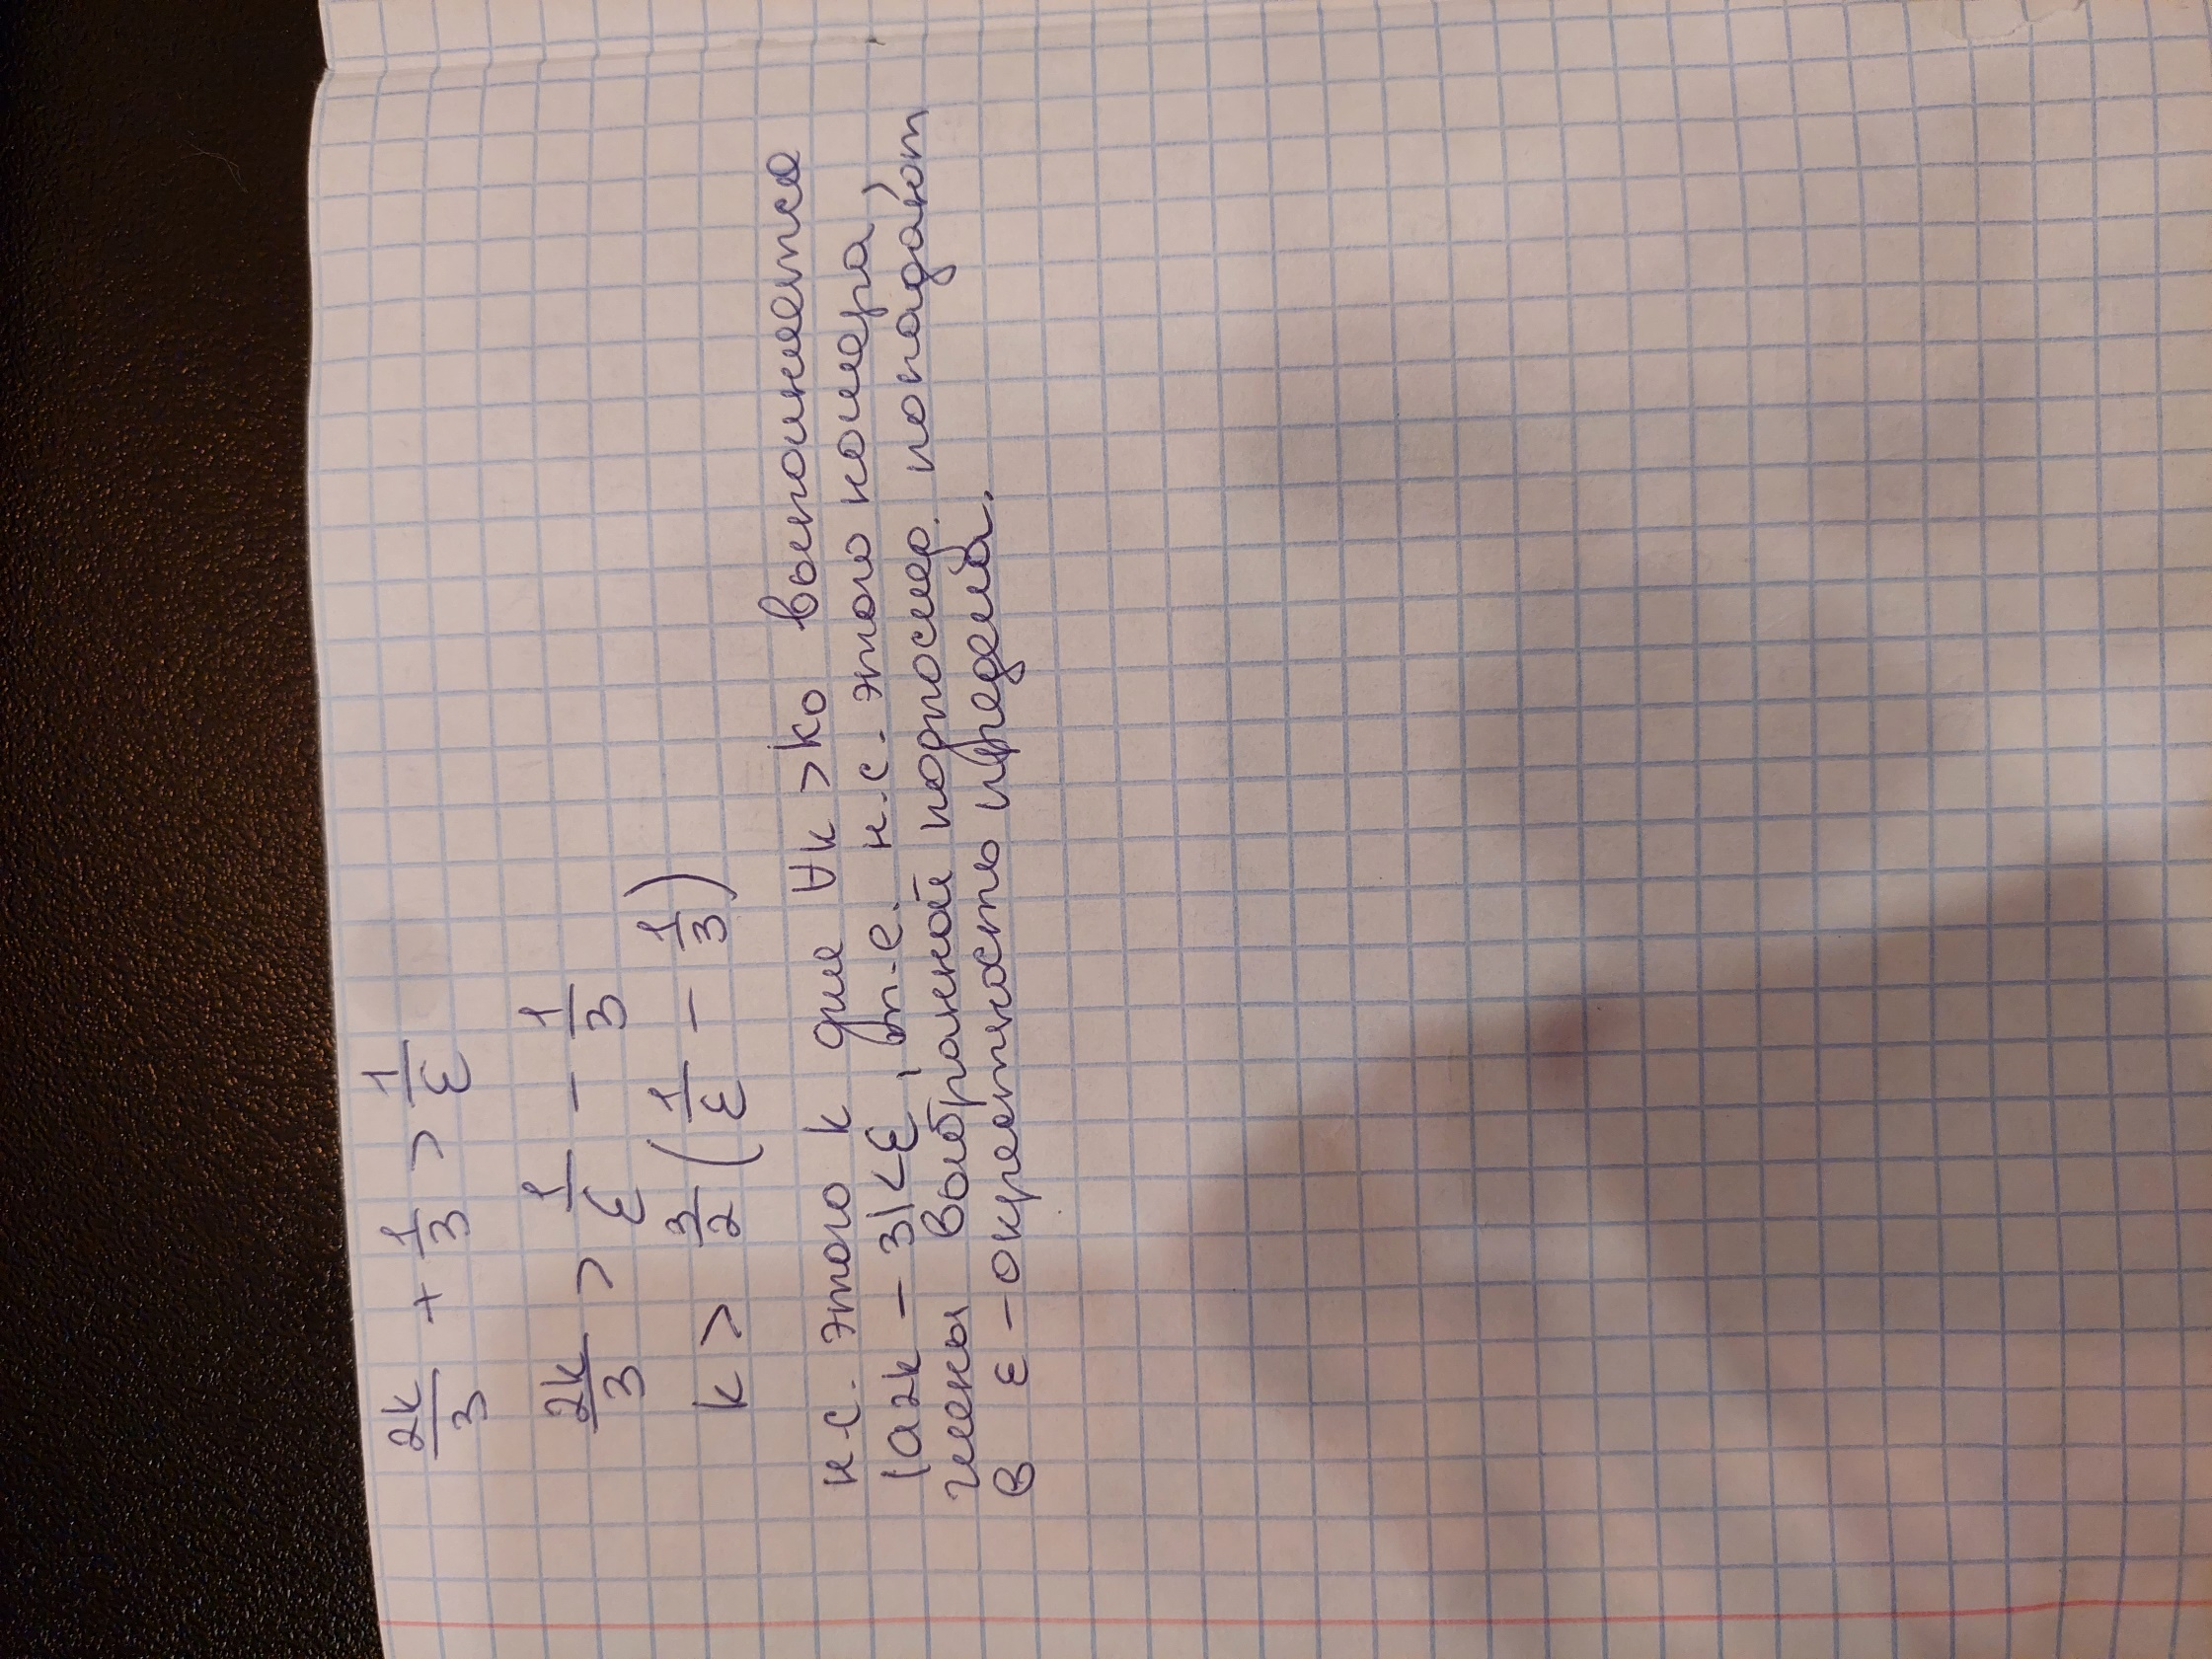 2k/3 + 1/3 > 1/ε
2k/3 > 1/ε - 1/3
k > 3/2 (1/ε - 1/3)
н.с. этого k для ∀k > k0 выполняется
|a2k - 3| < ε, т.е. н.с. этого номера,
члены выбранной подпослед. попадают
в ε - окрестность предела.